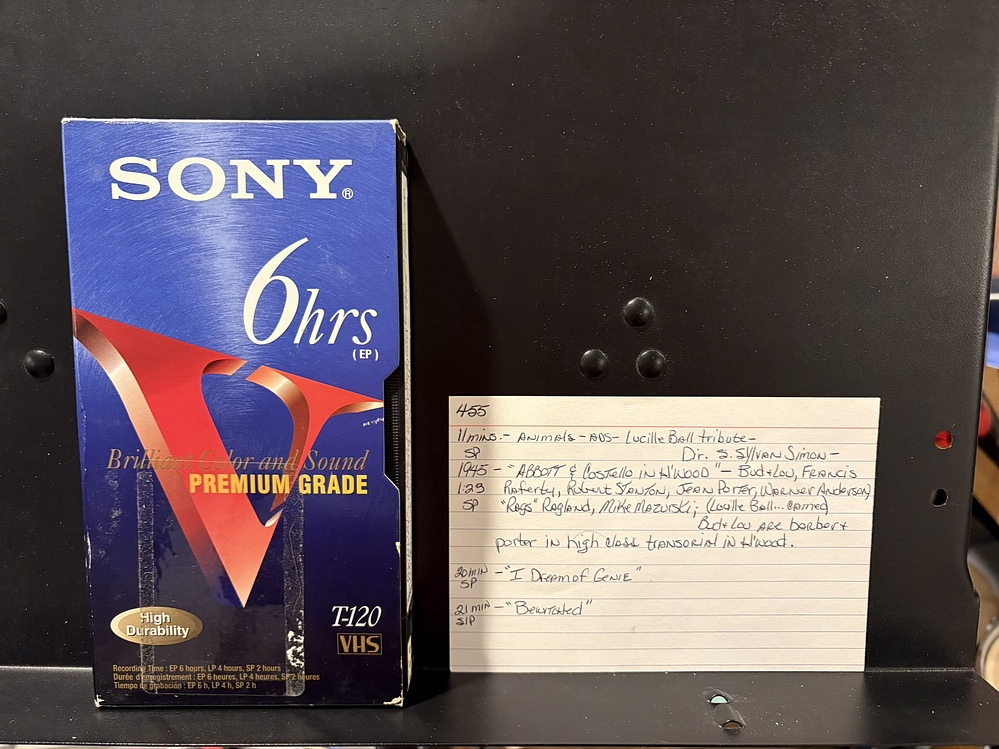 SONY®
6hrs
(EP)
Brilliant Color and Sound
PREMIUM GRADE
High
Durability
T-120
VHS
Recording Time : EP 6 hours, LP 4 hours, SP 2 hours
Durée d'enregistrement : EP 6 heures, LP 4 heures, SP 2 heures
Tiempo de grabación : EP 6 h, LP 4 h, SP 2 h
455
11 mins. - Animals - ADS - Lucille Ball tribute -
SP Dir. S. Sylvan Simon -
1945 - "ABBOTT & Costello in H'WOOD" - Bud & Lou, Francis
1:23 Raferty, Robert Stanton, Jean Porter, Warner Anderson,
SP "Rags" Ragland, Mike Mazurski; (Lucille Ball... cameo)
Bud & Lou are barber &
porter in high class transorial in H'wood.
20 min - "I Dream of Genie"
SP
21 min - "Bewitched"
SLP